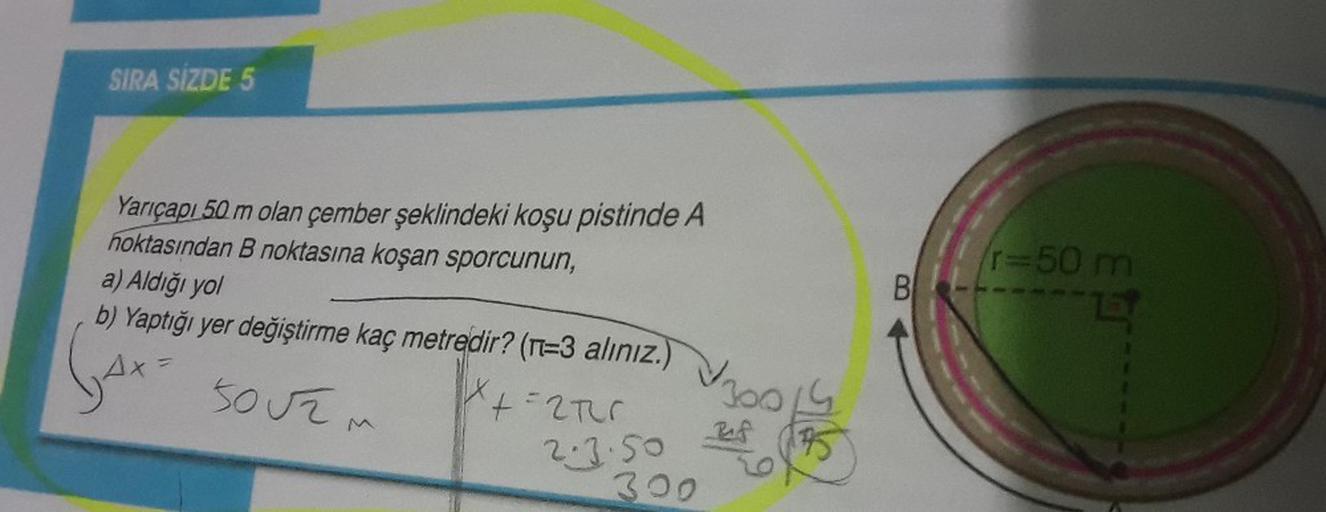 SIRA SİZDE 5
Yarıçapı 50 m olan çember şeklindeki koşu pistinde A
noktasından B noktasına koşan sporcunun,
a) Aldığı yol
b) Yaptığı yer değiştirme kaç metredir? (π=3 alınız.)
Δx =
50√2 m
x+ = 2πr
2.3.50
300
300 4
28 75
20
r=50 m
B